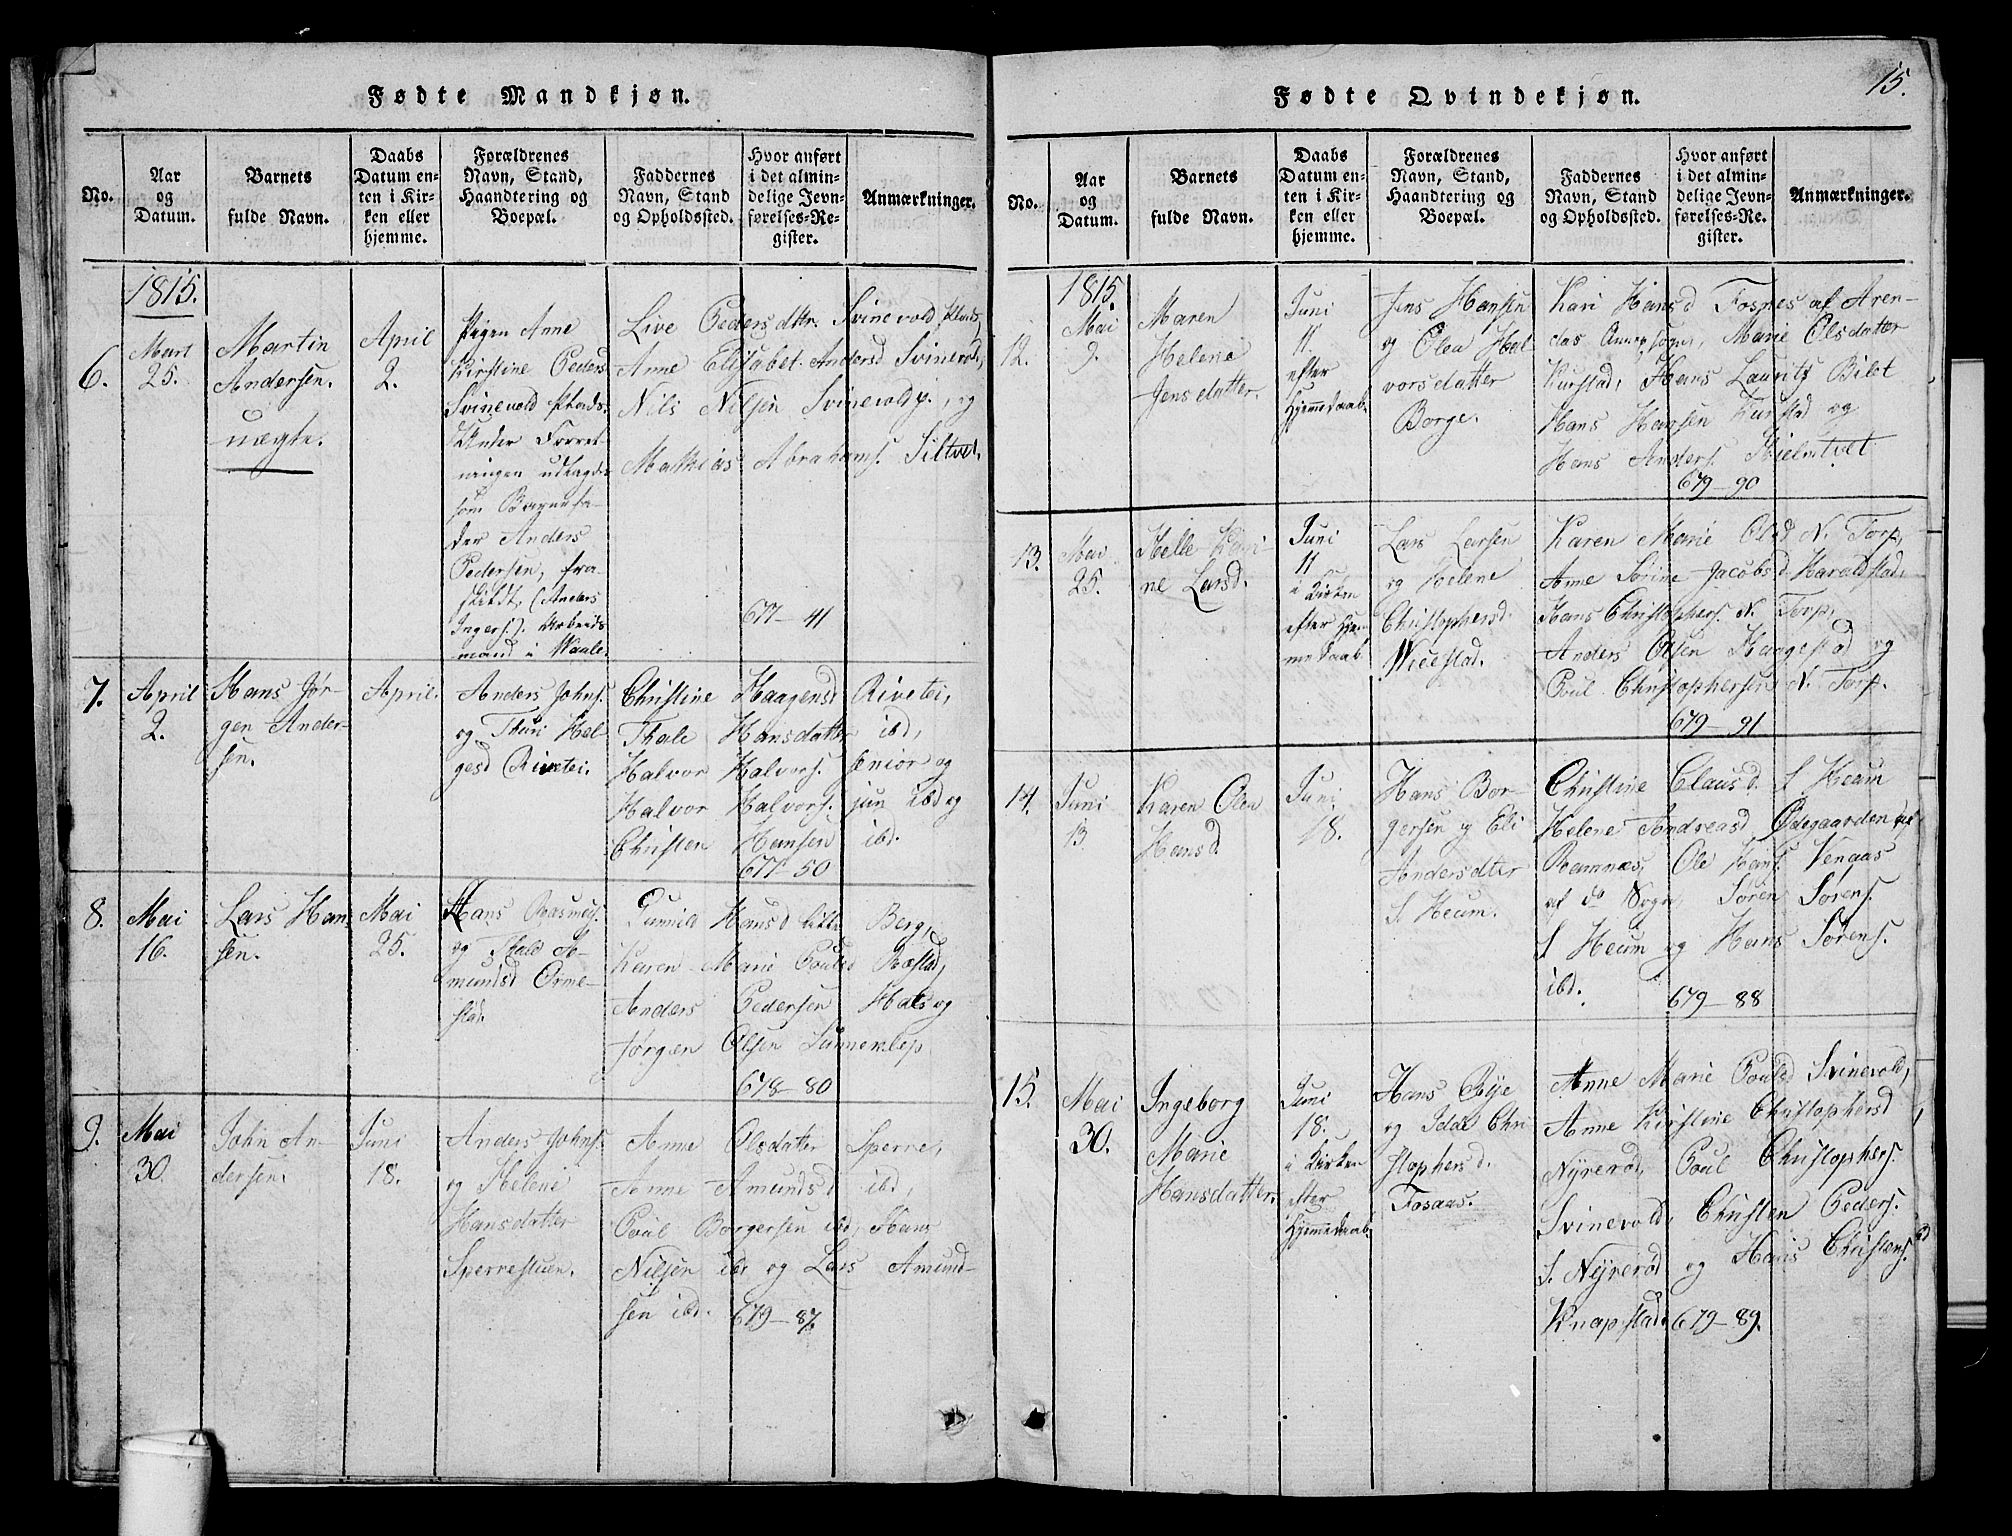 Fødte Mandkjøn.
No.
Aar
og
Datum.
Barnets
fulde Navn.
Daabs
Datum en-
ten i Kir-
ken eller
hjemme.
Forældrenes
Navn, Stand,
Haandtering og
Boepæl.
Faddernes
Navn, Stand
og Opholdssted.
Hvor anført
i det almin-
delige Jevn-
førelses-Re-
gister.
Anmærkninger.
1815.
6.
Mart
25.
Martin
Andersen.
uægte.
April
2.
Pigen Anne
Kirstine Peders
Svinevold Plads.
Under Forret
ningen udlagde
som Barnefa-
der Anders
Pedersen, fra-
skildt, (Anders
Ingers.). Arbeids
mand i Waale.
Live Pedersdttr. Svinevold Plads,
Anne Elisabet Andersd Svinevold,
Nils Nilsen Svinevoldp., og
Mathias Abrahams. Siltvet.
677-41
7.
April
2.
Hans Jør-
gen Ander-
sen.
April.
Anders Johns.
og Thuri Hel
gesd Rivetei.
Christine Haagensd Rivetei,
Thale Hansdatter ibd,
Halvor Halvors. senior og
Halvor Halvors. jun ibd og
Christen Hansen ibd.
677-50
8.
Mai
16.
Lars Han
sen.
Mai
25.
Hans Rasmus.
og Thale A-
mundsd Orme-
stad.
Gunild Hansd lille Berg,
Karen Marie Poulsd Røstad,
Anders Pedersen Hals og
Jørgen Olsen Sunneklep
678-80
9.
Mai
30.
John An-
dersen.
Juni
18.
Anders Johns.
og Helene
Hansdatter
Sperrestuen.
Anne Olsdatter Sperre,
Anne Amundsd ibd,
Poul Borgersen ibd, Hans
Nilsen ibd og Lars Amund-
sen ibd. 679-87
Fødte Qvindekjøn.
15.
No.
Aar
og
Datum.
Barnets
fulde Navn.
Daabs
Datum en-
ten i Kir-
ken eller
hjemme.
Forældrenes
Navn, Stand,
Haandtering og
Boepæl.
Faddernes
Navn, Stand
og Opholdssted.
Hvor anført
i det almin-
delige Jevn-
førelses-Re.
gister.
Anmærkninger.
1815.
12.
Mai
9.
Maren
Helene
Jensdatter.
Juni
11.
efter
Hjemmedaab.
Jens Hansen
og Olea Hal
vorsdatter
Borge.
Kari Hansd Fosnes af Aren-
das Annexsogn, Marie Olsdatter
Kurstad, Hans Laurits Bilet
Hans Hansen Kurstad og
Hans Anders. Hielmtvet
679-90
13.
Mai
25.
Helle Kari-
ne Larsd.
Juni
11
i Kirken
efter Hjem
medaab
Lars Larsen
og Helene
Christophersd.
Wieestad.
Karen Marie Olsd N. Torp,
Anne Sorine Jacobsd Haroldstad,
Hans Christophers. N. Torp,
Anders Olsen Haagestad og
Poul Christophersen N. Torp.
679-91
14.
Juni
13.
Karen Olea
Hansd.
Juni
18.
Hans Bor-
gersen og Eli
Andersdter
S. Heum.
Christine Clausd. S Heum
Helene Andreasd. Ødegaarden af
Ramnæs, Ole Hans. Venaas
af do Sogn, Søren Sørens.
S Heum og Hans Sørens.
ibd.
679-88
15.
Mai
30.
Ingeborg
Marie
Hansdatter.
Juni
18.
i Kirken
efter
Hjemmedaab.
Hans Rye
og Idde Chri
stophersd.
Fosaas.
Anne Marie Poulsd Svinevold,
Anne Kirstine Christophersd
Nyrerød, Poul Christophers.
Svinevold, Christen Peders.
S. Nyrerød og Hans Christens.
Knapstad. 679-89.